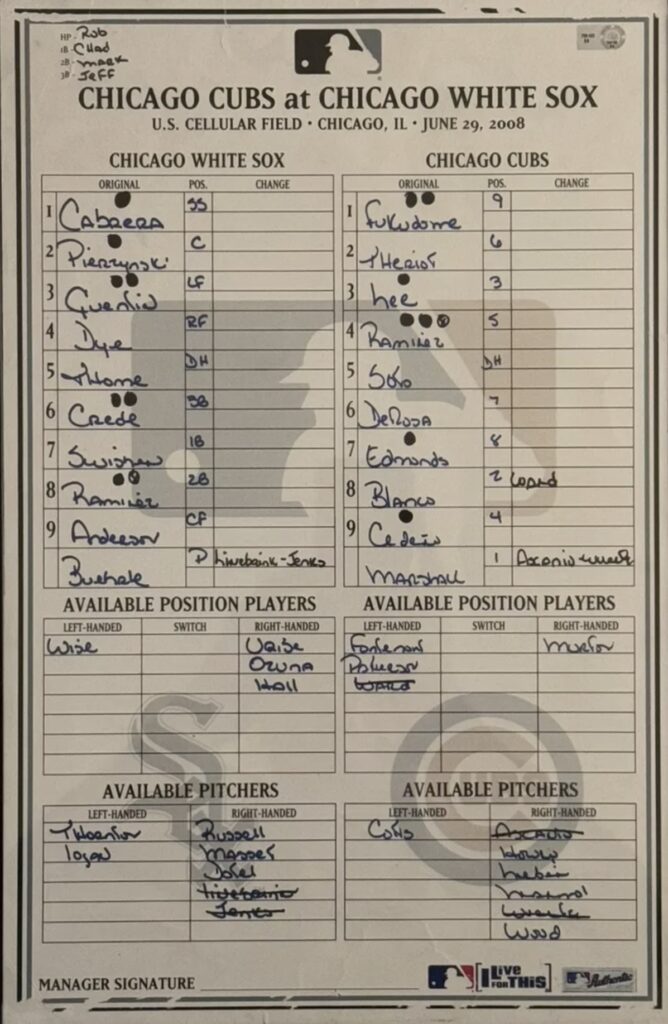 HP - Rob
1B - Chad
2B - mark
3B - Jeff
CHICAGO CUBS at CHICAGO WHITE SOX
U.S. CELLULAR FIELD • CHICAGO, IL • JUNE 29, 2008
CHICAGO WHITE SOX
ORIGINAL POS. CHANGE
1 Cabrera SS
2 Pierzynski C
3 Quentin LF
4 Dye RF
5 Thome DH
6 Crede 3B
7 Swisher 1B
8 Ramirez 2B
9 Anderson CF
Buehrle P Linebrink - Jenks
CHICAGO CUBS
ORIGINAL POS. CHANGE
1 Fukudome 9
2 Theriot 6
3 Lee 3
4 Ramirez 5
5 Soto DH
6 DeRosa 7
7 Edmonds 8
8 Blanco 2
9 Cedeño 4
Marshall 1 Ascanio - Wuertz
AVAILABLE POSITION PLAYERS
LEFT-HANDED SWITCH RIGHT-HANDED
Wise Uribe
Ozuna
Hall
AVAILABLE POSITION PLAYERS
LEFT-HANDED SWITCH RIGHT-HANDED
Fontenot Murton
Patterson
Ward
AVAILABLE PITCHERS
LEFT-HANDED RIGHT-HANDED
Thornton Russell
Logan Masset
Dotel
Linebrink
Jenks
AVAILABLE PITCHERS
LEFT-HANDED RIGHT-HANDED
Cotts Ascanio
Howry
Lieber
Marmol
Wuertz
Wood
MANAGER SIGNATURE
I Live FOR THIS
Authentic